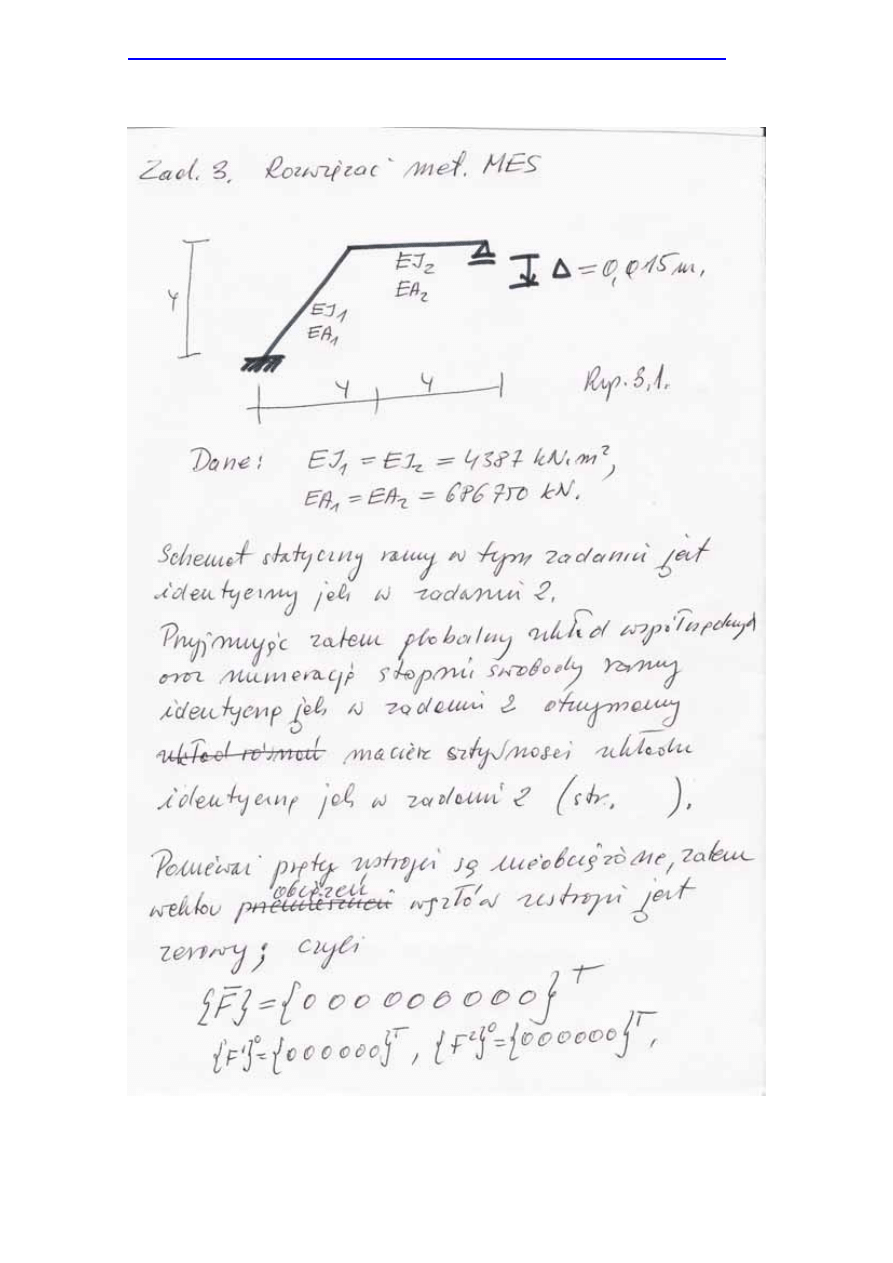 Zad. 3. Rozwiązać met. MES
EJ₂
EA₂
Δ = 0,015 m.
4
EJ₁
EA₁
4 4
Rys. 3.1.
Dane: EJ₁ = EJ₂ = 4387 kN·m²,
EA₁ = EA₂ = 686750 kN.
Schemat statyczny ramy w tym zadaniu jest
identyczny jak w zadaniu 2.
Przyjmując zatem globalny układ współrzędnych
oraz numerację stopni swobody ramy
identyczną jak w zadaniu 2 otrzymamy
układ równań macierz sztywności układu
identyczną jak w zadaniu 2 (str. ).
Ponieważ pręty ustroju są nieobciążone, zatem
obciążeń
wektor przemieszczeń węzłów ustroju jest
zerowy; czyli
{F̄} = {0 0 0 0 0 0 0 0 0}ᵀ
{F¹}⁰ = {0 0 0 0 0 0}ᵀ, {F²}⁰ = {0 0 0 0 0 0}ᵀ,